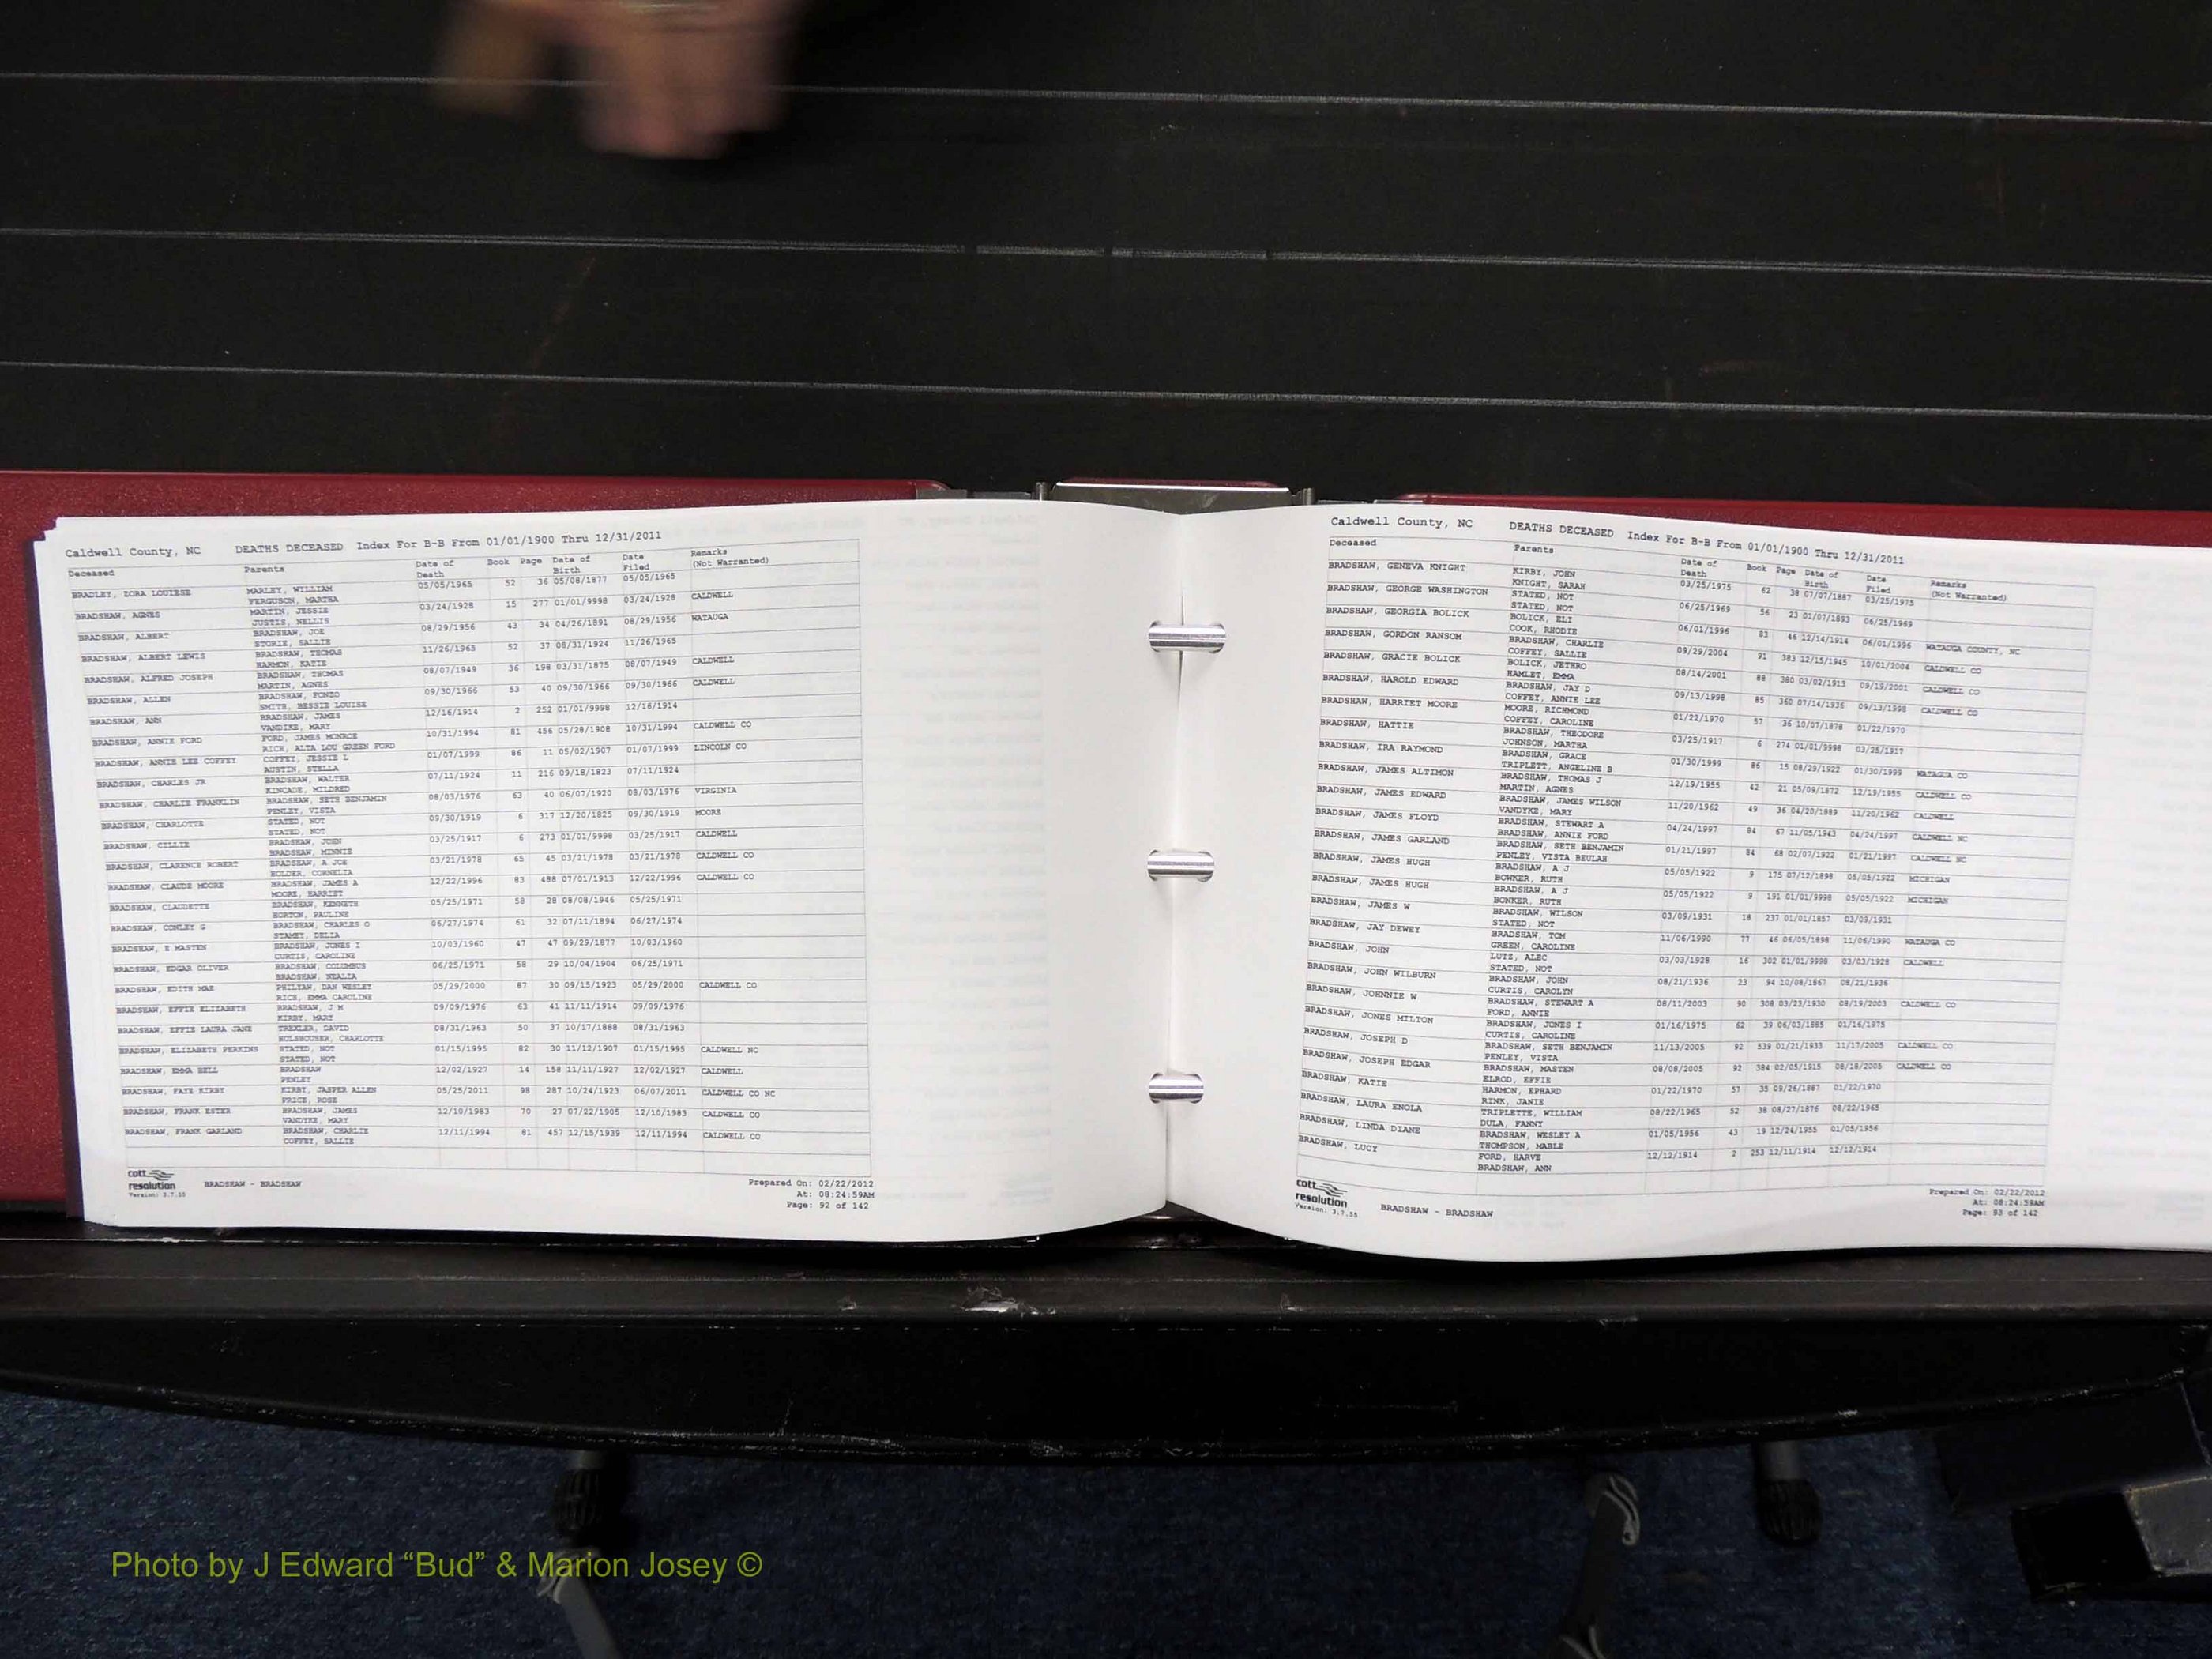 Caldwell County, NC DEATHS DECEASED Index For B-B From 01/01/1900 Thru 12/31/2011
Deceased Parents Date of Death Book Page Date of Birth Date Filed Remarks (Not Warranted)
BRADLEY, ZORA LOUIESE MARLEY, WILLIAM 05/05/1965 52 36 05/08/1877 05/05/1965
FERGUSON, MARTHA
BRADSHAW, AGNES MARTIN, JESSIE 03/24/1928 15 277 01/01/9998 03/24/1928 CALDWELL
JUSTIS, NELLIS
BRADSHAW, ALBERT BRADSHAW, JOE 08/29/1956 43 34 04/26/1891 08/29/1956 WATAUGA
STORIE, SALLIE
BRADSHAW, ALBERT LEWIS BRADSHAW, THOMAS 11/26/1965 52 37 08/31/1924 11/26/1965
HARMON, KATIE
BRADSHAW, ALFRED JOSEPH BRADSHAW, THOMAS 08/07/1949 36 198 03/31/1875 08/07/1949 CALDWELL
MARTIN, AGNES
BRADSHAW, ALLEN BRADSHAW, FONZO 09/30/1966 53 40 09/30/1966 09/30/1966 CALDWELL
SMITH, BESSIE LOUISE
BRADSHAW, ANN BRADSHAW, JAMES 12/16/1914 2 252 01/01/9998 12/16/1914
VANDIKE, MARY
BRADSHAW, ANNIE FORD FORD, JAMES MONROE 10/31/1994 81 456 05/28/1908 10/31/1994 CALDWELL CO
RICH, ALTA LOU GREEN FORD
BRADSHAW, ANNIE LEE COFFEY COFFEY, JESSIE L 01/07/1999 86 11 05/02/1907 01/07/1999 LINCOLN CO
AUSTIN, STELLA
BRADSHAW, CHARLES JR BRADSHAW, WALTER 07/11/1924 11 216 09/18/1823 07/11/1924
KINCADE, MILDRED
BRADSHAW, CHARLIE FRANKLIN BRADSHAW, SETH BENJAMIN 08/03/1976 63 40 06/07/1920 08/03/1976 VIRGINIA
PENLEY, VISTA
BRADSHAW, CHARLOTTE STATED, NOT 09/30/1919 6 317 12/20/1825 09/30/1919 MOORE
STATED, NOT
BRADSHAW, CILLIE BRADSHAW, JOHN 03/25/1917 6 273 01/01/9998 03/25/1917 CALDWELL
BRADSHAW, MINNIE
BRADSHAW, CLARENCE ROBERT BRADSHAW, A JOE 03/21/1978 65 45 03/21/1978 03/21/1978 CALDWELL CO
HOLDER, CORNELIA
BRADSHAW, CLAUDE MOORE BRADSHAW, JAMES A 12/22/1996 83 488 07/01/1913 12/22/1996 CALDWELL CO
MOORE, HARRIET
BRADSHAW, CLAUDETTE BRADSHAW, KENNETH 05/25/1971 58 28 08/08/1946 05/25/1971
HORTON, PAULINE
BRADSHAW, CONLEY G BRADSHAW, CHARLES O 06/27/1974 61 32 07/11/1894 06/27/1974
STAMEY, DELIA
BRADSHAW, E MASTEN BRADSHAW, JONES I 10/03/1960 47 47 09/29/1877 10/03/1960
CURTIS, CAROLINE
BRADSHAW, EDGAR OLIVER BRADSHAW, COLUMBUS 06/25/1971 58 29 10/04/1904 06/25/1971
BRADSHAW, NEALIA
BRADSHAW, EDITH MAE PHILYAW, DAN WESLEY 05/29/2000 87 30 09/15/1923 05/29/2000 CALDWELL CO
RICE, EMMA CAROLINE
BRADSHAW, EFFIE ELIZABETH BRADSHAW, J M 09/09/1976 63 41 11/11/1914 09/09/1976
KIRBY, MARY
BRADSHAW, EFFIE LAURA JANE TREXLER, DAVID 08/31/1963 50 37 10/17/1888 08/31/1963
HOLSHOUSER, CHARLOTTE
BRADSHAW, ELIZABETH PERKINS STATED, NOT 01/15/1995 82 30 11/12/1907 01/15/1995 CALDWELL NC
STATED, NOT
BRADSHAW, EMMA BELL BRADSHAW 12/02/1927 14 158 11/11/1927 12/02/1927 CALDWELL
PENLEY
BRADSHAW, FAYE KIRBY KIRBY, JASPER ALLEN 05/25/2011 98 287 10/24/1923 06/07/2011 CALDWELL CO NC
PRICE, ROSE
BRADSHAW, FRANK ESTER BRADSHAW, JAMES 12/10/1983 70 27 07/22/1905 12/10/1983 CALDWELL CO
VANDYKE, MARY
BRADSHAW, FRANK GARLAND BRADSHAW, CHARLIE 12/11/1994 81 457 12/15/1939 12/11/1994 CALDWELL CO
COFFEY, SALLIE
cott
resolution
Version: 3.7.55
BRADSHAW - BRADSHAW
Prepared On: 02/22/2012
At: 08:24:59AM
Page: 92 of 142
Caldwell County, NC DEATHS DECEASED Index For B-B From 01/01/1900 Thru 12/31/2011
Deceased Parents Date of Death Book Page Date of Birth Date Filed Remarks (Not Warranted)
BRADSHAW, GENEVA KNIGHT KIRBY, JOHN 03/25/1975 62 38 07/07/1887 03/25/1975
KNIGHT, SARAH
BRADSHAW, GEORGE WASHINGTON STATED, NOT 06/25/1969 56 23 01/07/1893 06/25/1969
STATED, NOT
BRADSHAW, GEORGIA BOLICK BOLICK, ELI 06/01/1996 83 46 12/14/1914 06/01/1996 WATAUGA COUNTY, NC
COOK, RHODIE
BRADSHAW, GORDON RANSOM BRADSHAW, CHARLIE 09/29/2004 91 383 12/15/1945 10/01/2004 CALDWELL CO
COFFEY, SALLIE
BRADSHAW, GRACIE BOLICK BOLICK, JETHRO 08/14/2001 88 380 03/02/1913 09/19/2001 CALDWELL CO
HAMLET, EMMA
BRADSHAW, HAROLD EDWARD BRADSHAW, JAY D 09/13/1998 85 360 07/14/1936 09/13/1998 CALDWELL CO
COFFEY, ANNIE LEE
BRADSHAW, HARRIET MOORE MOORE, RICHMOND 01/22/1970 57 36 10/07/1878 01/22/1970
COFFEY, CAROLINE
BRADSHAW, HATTIE BRADSHAW, THEODORE 03/25/1917 6 274 01/01/9998 03/25/1917
JOHNSON, MARTHA
BRADSHAW, IRA RAYMOND BRADSHAW, GRACE 01/30/1999 86 15 08/29/1922 01/30/1999 WATAGUA CO
TRIPLETT, ANGELINE B
BRADSHAW, JAMES ALTIMON BRADSHAW, THOMAS J 12/19/1955 42 21 05/09/1872 12/19/1955 CALDWELL CO
MARTIN, AGNES
BRADSHAW, JAMES EDWARD BRADSHAW, JAMES WILSON 11/20/1962 49 36 04/20/1889 11/20/1962 CALDWELL
VANDYKE, MARY
BRADSHAW, JAMES FLOYD BRADSHAW, STEWART A 04/24/1997 84 67 11/05/1943 04/24/1997 CALDWELL NC
BRADSHAW, ANNIE FORD
BRADSHAW, JAMES GARLAND BRADSHAW, SETH BENJAMIN 01/21/1997 84 68 02/07/1922 01/21/1997 CALDWELL NC
PENLEY, VISTA BEULAH
BRADSHAW, JAMES HUGH BRADSHAW, A J 05/05/1922 9 175 07/12/1898 05/05/1922 MICHIGAN
BOWKER, RUTH
BRADSHAW, JAMES HUGH BRADSHAW, A J 05/05/1922 9 191 01/01/9998 05/05/1922 MICHIGAN
BONKER, RUTH
BRADSHAW, JAMES W BRADSHAW, WILSON 03/09/1931 18 237 01/01/1857 03/09/1931
STATED, NOT
BRADSHAW, JAY DEWEY BRADSHAW, TOM 11/06/1990 77 46 06/05/1898 11/06/1990 WATAUGA CO
GREEN, CAROLINE
BRADSHAW, JOHN LUTZ, ALEC 03/03/1928 16 302 01/01/9998 03/03/1928 CALDWELL
STATED, NOT
BRADSHAW, JOHN WILBURN BRADSHAW, JOHN 08/21/1936 23 94 10/08/1867 08/21/1936
CURTIS, CAROLYN
BRADSHAW, JOHNNIE W BRADSHAW, STEWART A 08/11/2003 90 308 03/23/1930 08/19/2003 CALDWELL CO
FORD, ANNIE
BRADSHAW, JONES MILTON BRADSHAW, JONES I 01/16/1975 62 39 06/03/1885 01/16/1975
CURTIS, CAROLINE
BRADSHAW, JOSEPH D BRADSHAW, SETH BENJAMIN 11/13/2005 92 539 01/21/1933 11/17/2005 CALDWELL CO
PENLEY, VISTA
BRADSHAW, JOSEPH EDGAR BRADSHAW, MASTEN 08/08/2005 92 384 02/05/1915 08/18/2005 CALDWELL CO
ELROD, EFFIE
BRADSHAW, KATIE HARMON, EPHARD 01/22/1970 57 35 09/26/1887 01/22/1970
RINK, JANIE
BRADSHAW, LAURA ENOLA TRIPLETTE, WILLIAM 08/22/1965 52 38 08/27/1876 08/22/1965
DULA, FANNY
BRADSHAW, LINDA DIANE BRADSHAW, WESLEY A 01/05/1956 43 19 12/24/1955 01/05/1956
THOMPSON, MABLE
BRADSHAW, LUCY FORD, HARVE 12/12/1914 2 253 12/11/1914 12/12/1914
BRADSHAW, ANN
cott
resolution
Version: 3.7.55
BRADSHAW - BRADSHAW
Prepared On: 02/22/2012
At: 08:24:59AM
Page: 93 of 142
Photo by J Edward “Bud” & Marion Josey ©